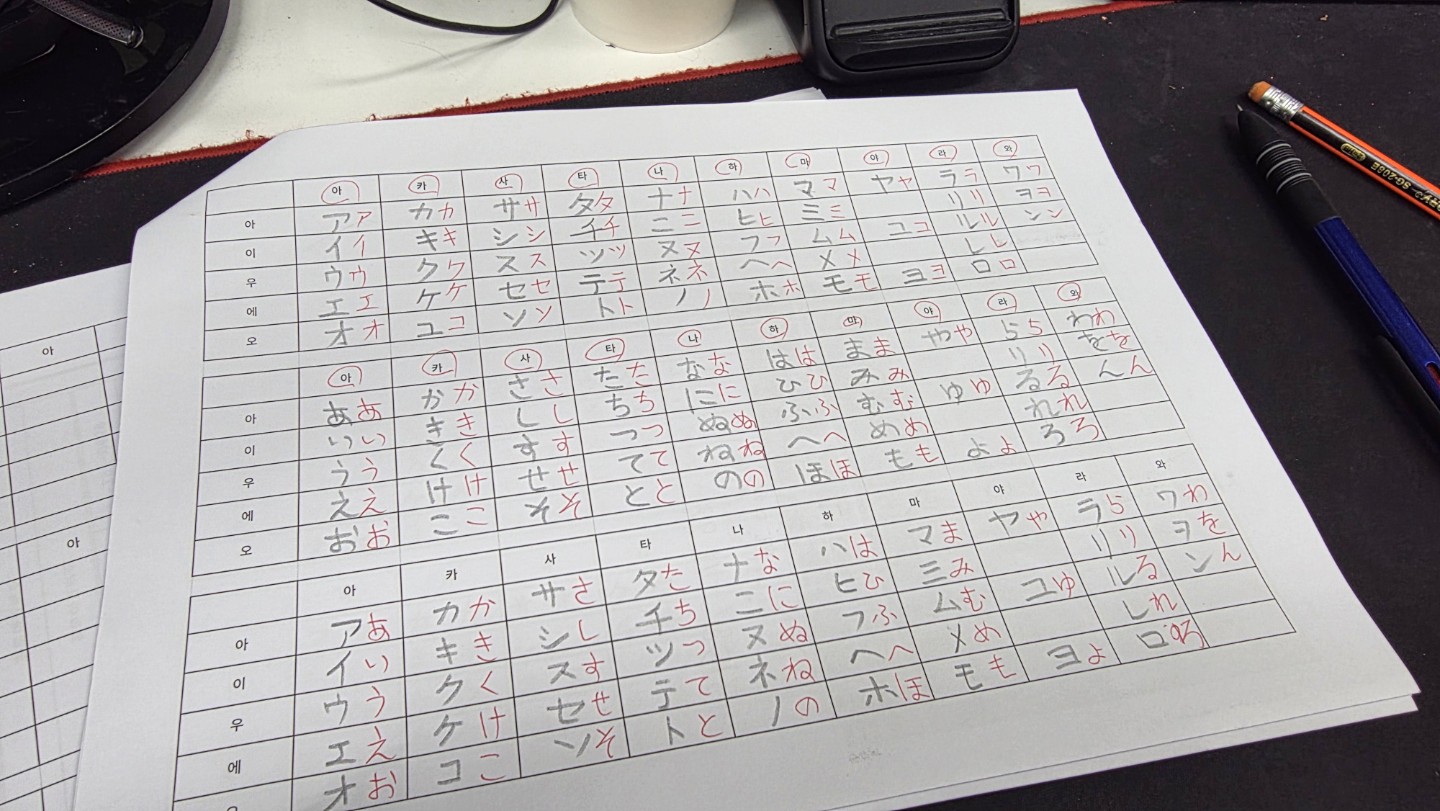 아 카 사 타 나 하 마 야 라 와
아 アア カカ ササ タタ ナナ ハハ ママ ヤヤ ララ ワワ
이 イイ キキ シシ チチ ニニ ヒヒ ミミ リリ ヲヲ
우 ウウ クク スス ツツ ヌヌ フフ ムム ユユ ルル ンン
에 エエ ケケ セセ テテ ネネ ヘヘ メメ レレ
오 オオ ココ ソソ トト ノノ ホホ モモ ヨヨ ロロ
아 카 사 타 나 하 마 야 라 와
아 ああ かか ささ たた なな はは まま やや らら わわ
이 いい きき しし ちち にに ひひ みみ りり をを
우 うう くく すす つつ ぬぬ ふふ むむ ゆゆ るる んん
에 ええ けけ せせ てて ねね へへ めめ れれ
오 おお ここ そそ とと のの ほほ もも よよ ろろ
아 카 사 타 나 하 마 야 라 와
아 アあ カか サさ タた ナな ハは マま ヤや ラら ワわ
이 イい キき シし チち ニに ヒひ ミみ リり ヲを
우 ウう クく スす ツつ ヌぬ フふ ムむ ユゆ ルる ンん
에 エえ ケけ セせ テて ネね ヘへ メめ レれ
オお コこ ソそ トと ノの ホほ モも ヨよ ロろ
아
아